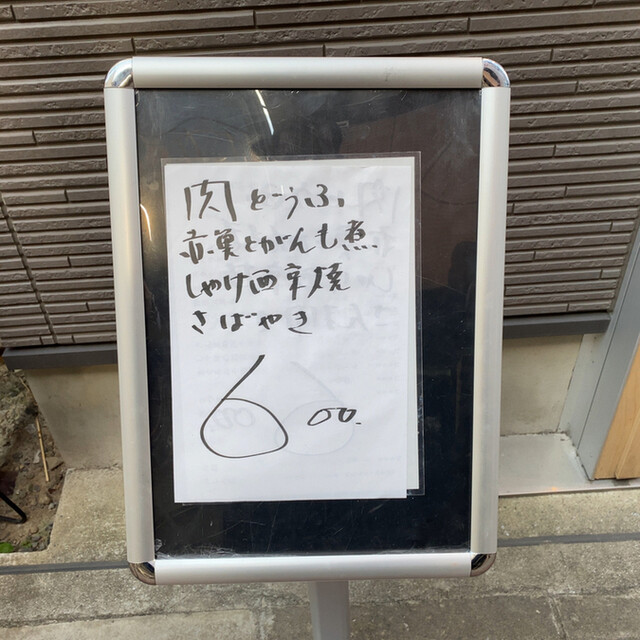 肉どうふ
赤魚とがんも煮
しゃけ西京焼
さばやき
600.